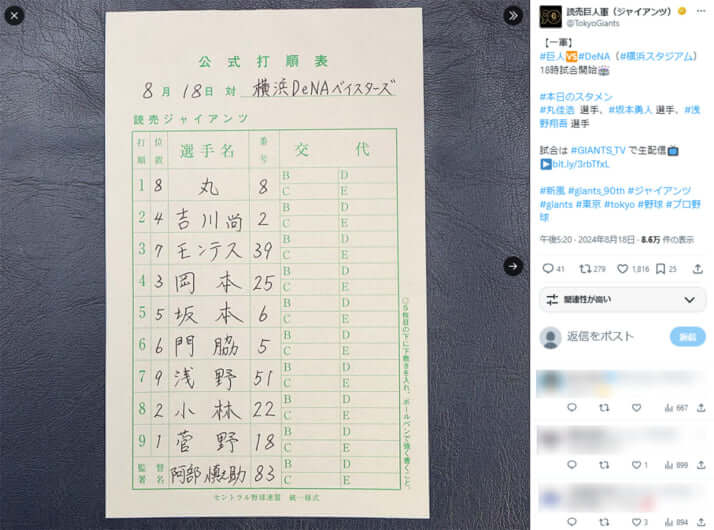 公式打順表
8月18日対 横浜DeNAベイスターズ
読売ジャイアンツ
打順 位置 選手名 番号 交代
1 8 丸 8 B D C E
2 4 吉川尚 2 B D C E
3 7 モンテス 39 B D C E
4 3 岡本 25 B D C E
5 5 坂本 6 B D C E
6 6 門脇 5 B D C E
7 9 浅野 51 B D C E
8 2 小林 22 B D C E
9 1 菅野 18 B D C E
監督署名 阿部慎之助 83 B D C E
セントラル野球連盟 統一様式
○5枚目の下に下敷きを入れ、ボールペンで強く書くこと。
読売巨人軍(ジャイアンツ)
@TokyoGiants
【一軍】
#巨人🆚#DeNA(#横浜スタジアム)
18時試合開始🏟
#本日のスタメン
#丸佳浩 選手、#坂本勇人 選手、#浅
野翔吾 選手
試合は #GIANTS_TV で生配信📺
▶bit.ly/3rbTfxL
#新風 #giants_90th #ジャイアンツ
#giants #東京 #tokyo #野球 #プロ野
球
午後5:20 · 2024年8月18日 · 8.6万 件の表示
41 279 1,816 25
関連性が高い
返信をポスト
667
1 899
3 894